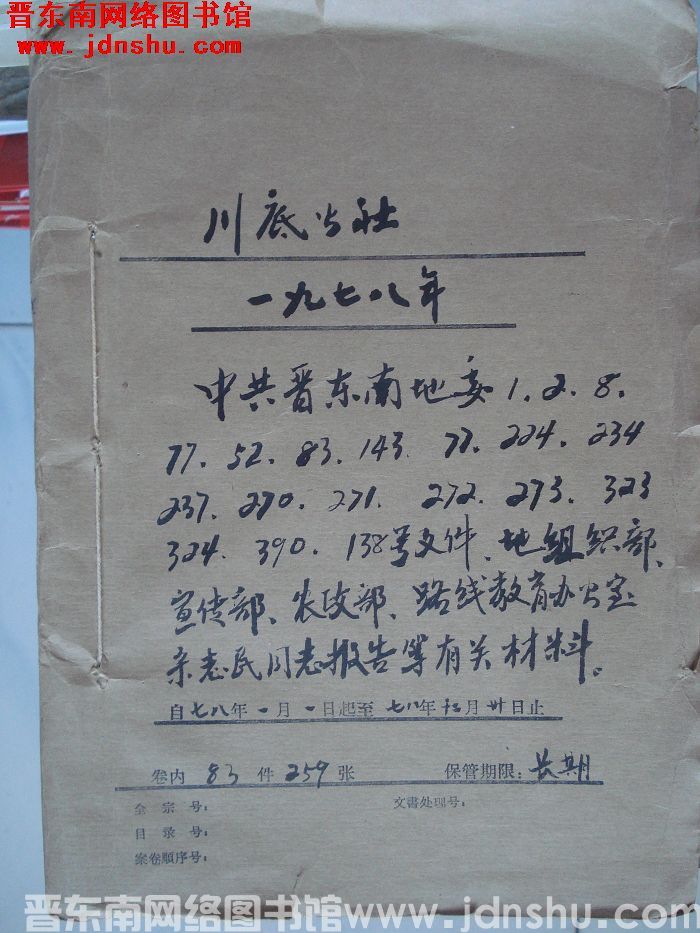 晋东南网络图书馆
www.jdnshu.com
川底公社
一九七八年
中共晋东南地委1.2.8.
77.52.83.143.77.224.234
237.270.271.272.273.323
324.390.138号文件、地组织部、
宣传部、农政部、路线教育办公室
志民同志报告等有关材料。
自七八年一月一日起至七八年十二月卅日止
卷内83件259张 保管期限:长期
全宗号: 文書处理号:
目录号:
案卷順序号:
晋东南网络图书馆 www.jdnshu.com